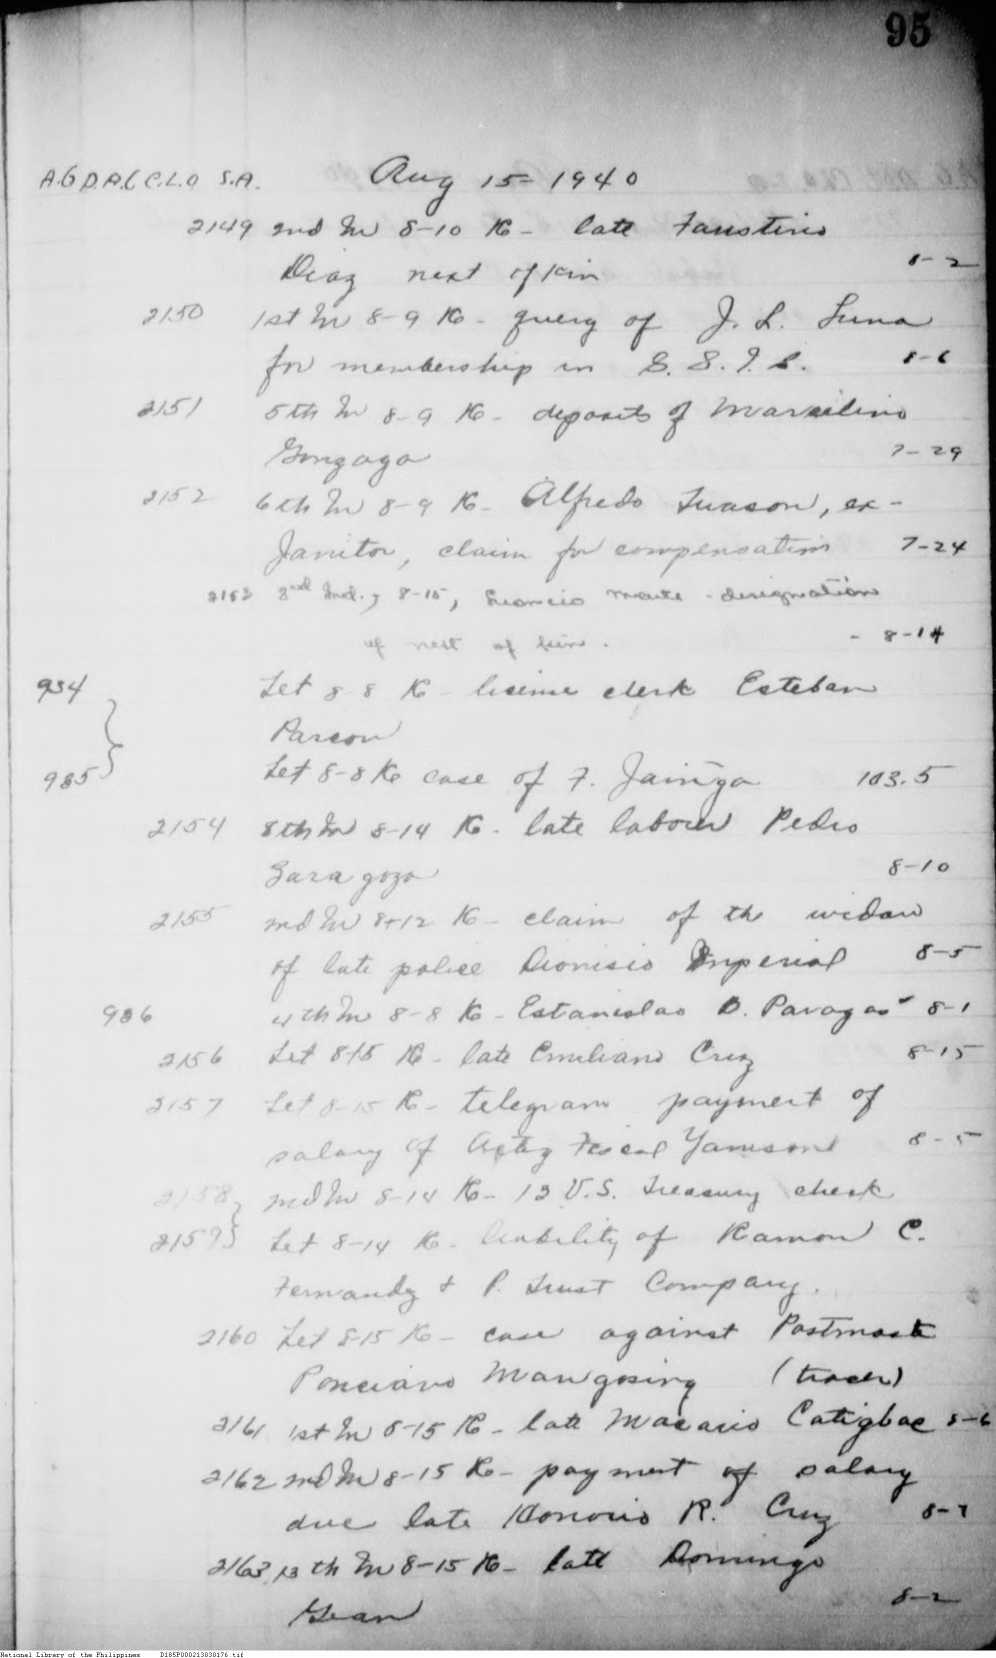 95
A.G D.A.G C.L.O S.A. Aug 15- 1940
2149 2nd In 8-10 K- late Faustino
Diaz next of kin 8-2
2150 1st In 8-9 K- query of J. L. Luna
for membership in G. S. I. S. 8-6
2151 5th In 8-9 K- deposits of Marcelino
Gonzaga 7-29
2152 6th In 8-9 K- Alfredo Tuason, ex-
Janitor, claim for compensation 7-24
2153 2nd Ind., 8-15, Leoncio - designation
of next of kin. - 8-14
934 Let 8-8 K- license clerk Esteban
Pareon
985 Let 8-8 K case of F. 103.5
2154 8th In 8-14 K- late laborer Pedro
Zaragoza 8-10
2155 2nd In 8-12 K- claim of the widow
of late police Dionisio Imperial 8-5
986 4th In 8-8 K- Estanislao D. Pavagas 8-1
2156 Let 8-15 K- late Emiliano Cruz 8-15
2157 Let 8-15 K- telegram payment of
salary of Acting Fiscal 8-5
2158 2nd In 8-14 K- 13 U.S. Treasury check
2159 Let 8-14 K- liability of Ramon C.
Fernandez & P. Trust Company.
2160 Let 8-15 K- case against Postmaster
Ponciano Mangosing (tracer)
2161 1st In 8-15 K- late Macario Catigbac 8-6
2162 2nd In 8-15 K- payment of salary
due late Honorio R. Cruz 8-7
2163 13th In 8-15 K- late Domingo
8-2
National Library of the Philippines D185P000213030176.tif